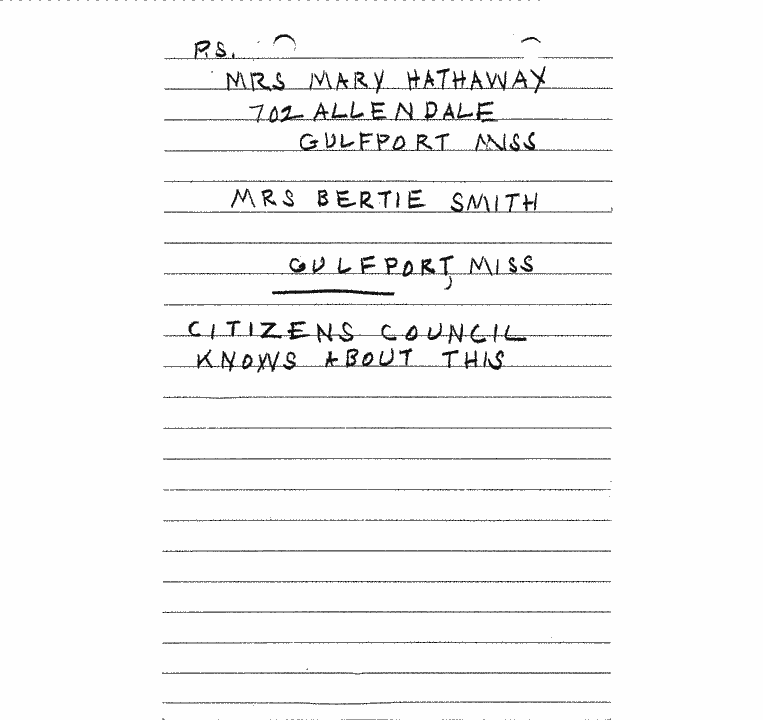 P.S.
MRS MARY HATHAWAY
702 ALLENDALE
GULFPORT MISS
MRS BERTIE SMITH
GULFPORT, MISS
CITIZENS COUNCIL
KNOWS ABOUT THIS